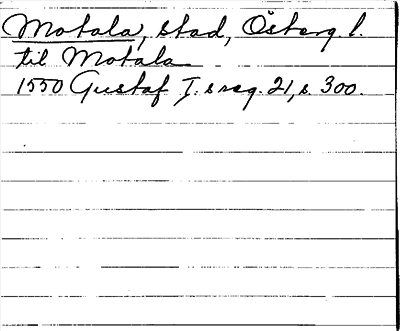 Motala, stad, Österg. l.
til Motala
1550 Gustaf I. s reg. 21, s. 300.